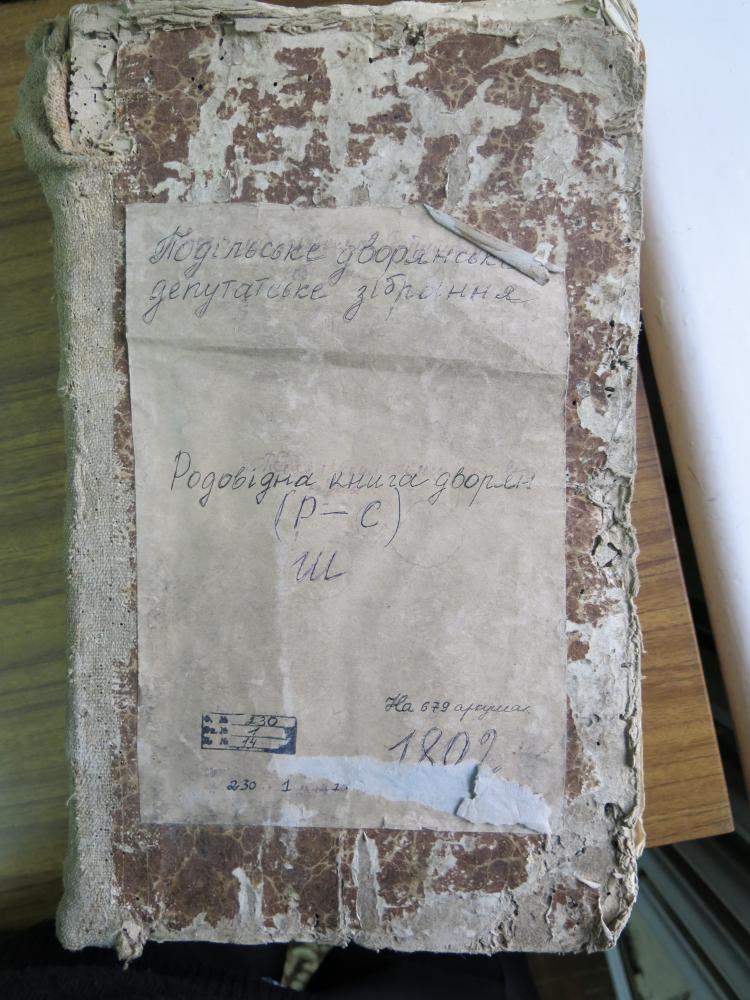 Подільське дворянське
депутатське зібрання
Родовідна книга дворян
(Р — С)
Ш
На 679 аркушах
1802
Ф. № 230
Оп. № 1
№ 14
230 1